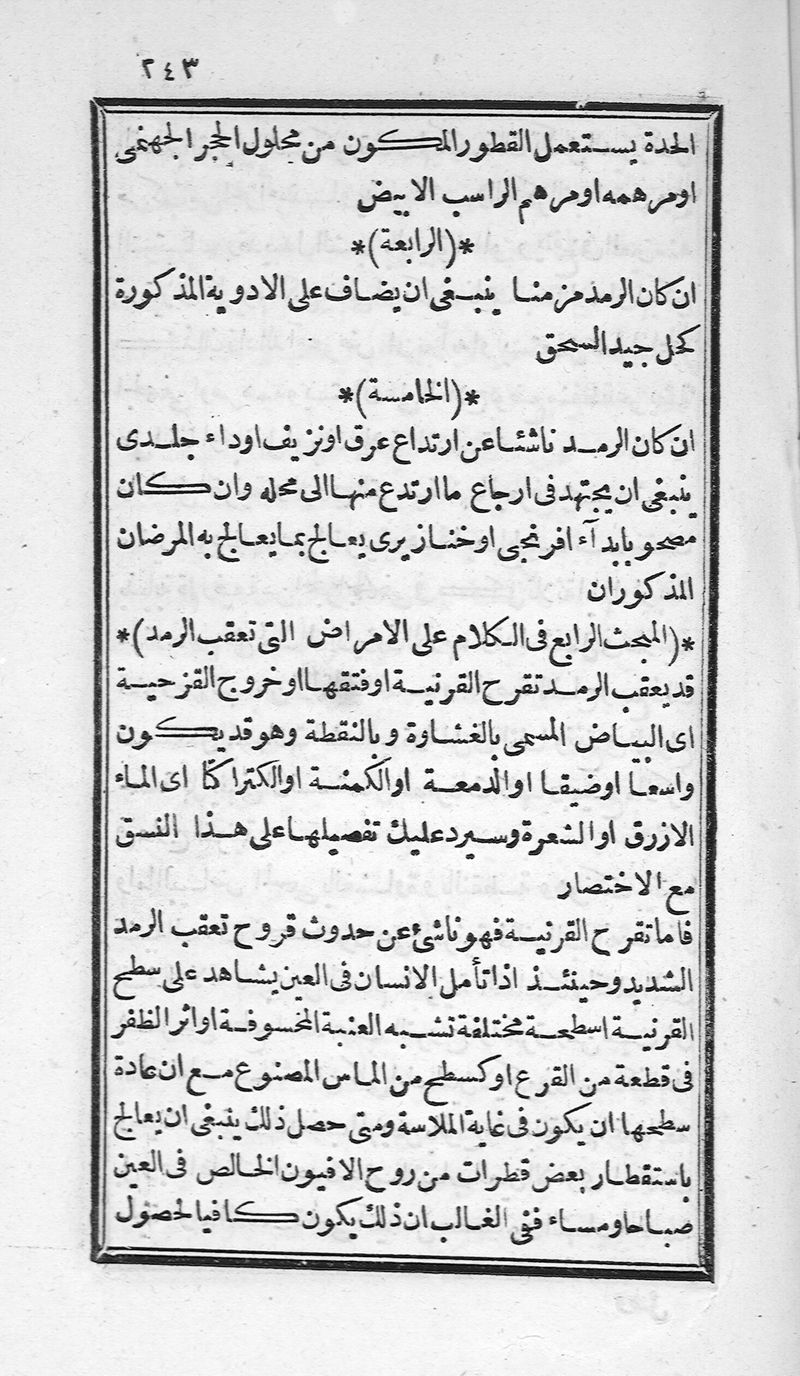 ٢٤٣
الحدة يستعمل القطور المكون من محلول الحجر الجهنمى
اومرهمه اومرهم الراسب الابيض
*(الرابعة)*
ان كان الرمد مزمنا ينبغى ان يضاف على الادوية المذكورة
كحل جيد السحق
*(الخامسة)*
ان كان الرمد ناشئا عن ارتداع عرق اونزيف اوداء جلدى
ينبغى ان يجتهد فى ارجاع ما ارتدع منها الى محله وان كان
مصحوبا بدآء افرنجى اوخنازيرى يعالج بما يعالج به المرضان
المذكوران
*(المبحث الرابع فى الكلام على الامراض التى تعقب الرمد)*
قد يعقب الرمد تقرح القرنية اوفتقها اوخروج القزحية
اى البياض المسمى بالغشاوة وبالنقطة وهو قد يكون
واسعا اوضيقا اوالدمعة اوالكمنة اوالكتراكتا اى الماء
الازرق اوالشعرة وسيرد عليك تفصيلها على هذا النسق
مع الاختصار
فاما تقرح القرنية فهو ناشئ عن حدوث قروح تعقب الرمد
الشديد وحينئذ اذا تأمل الانسان فى العين يشاهد على سطح
القرنية اسطحة مختلفة تشبه العنبة المخسوفة اواثر الظفر
فى قطعة من القرع اوكسطح من الماس المصنوع مع ان عادة
سطحها ان يكون فى غاية الملاسة ومتى حصل ذلك ينبغى ان يعالج
باستقطار بعض قطرات من روح الافيون الخالص فى العين
صباحا ومساء ففى الغالب ان ذلك يكون كافيا لحصول